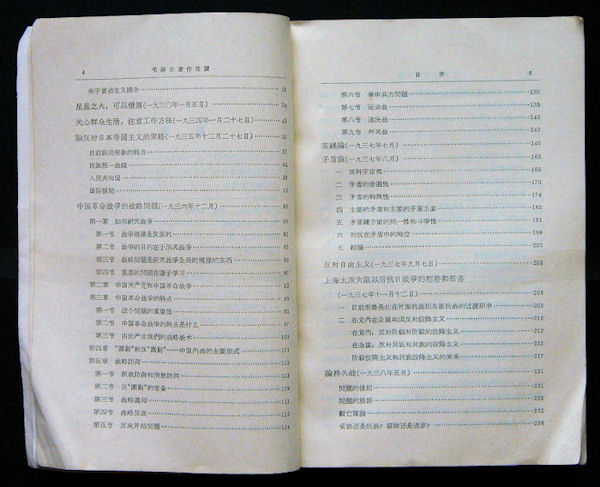 4 毛澤东著作选讀
关于盲动主义殘余 53
星星之火，可以燎原(一九三〇年一月五日)
关心群众生活，注意工作方法(一九三四年一月二十七日)
論反对日本帝国主义的策略(一九三五年十二月二十七日)
目前政治形势的特点
民族統一战綫
人民共和国
国际援助
中国革命战爭的战略問題(一九三六年十二月)
第一章 如何研究战爭
第一节 战爭规律是发展的
第二节 战爭的目的在于消灭战爭
第三节 战略問題是研究战爭全局的规律的东西
第四节 重要的問題在善于学习
第二章 中国共产党和中国革命战爭 92
第三章 中国革命战爭的特点 95
第一节 这个問題的重要性
第二节 中国革命战爭的特点是什么 97
第三节 由此产生我們的战略战术
第四章 “圍剿”和反“圍剿”——中国內战的主要形式
第五章 战略防御
第一节 积极防御和消极防御
第二节 反“圍剿”的准备 109
第三节 战略退却 112
第四节 战略反攻
第五节 反攻开始問題 124
目录 5
第六节 集中兵力問題 130
第七节 运动战 135
第八节 速决战
第九节 歼灭战
实践論(一九三七年七月)
矛盾論(一九三七年八月) 165
一 两种宇宙观 166
二 矛盾的普遍性 170
三 矛盾的特殊性 174
四 主要的矛盾和主要的矛盾方面
五 矛盾諸方面的同一性和斗爭性 191
六 对抗在矛盾中的地位 198
七 結論 200
反对自由主义(一九三七年九月七日)
上海太原失陷以后抗日战爭的形势和任务
(一九三七年十一月十二日)
一 目前形势是处在片面抗战到全面抗战的过渡期中
二 在党內在全国均須反对投降主义
在党內，反对阶級对阶級的投降主义
在全国，反对民族对民族的投降主义
阶級投降主义和民族投降主义的关系 217
論持久战(一九三八年五月)
問題的提起 221
問題的根据
駁亡国論 232
妥协还是抗战？腐敗还是进步？ 236